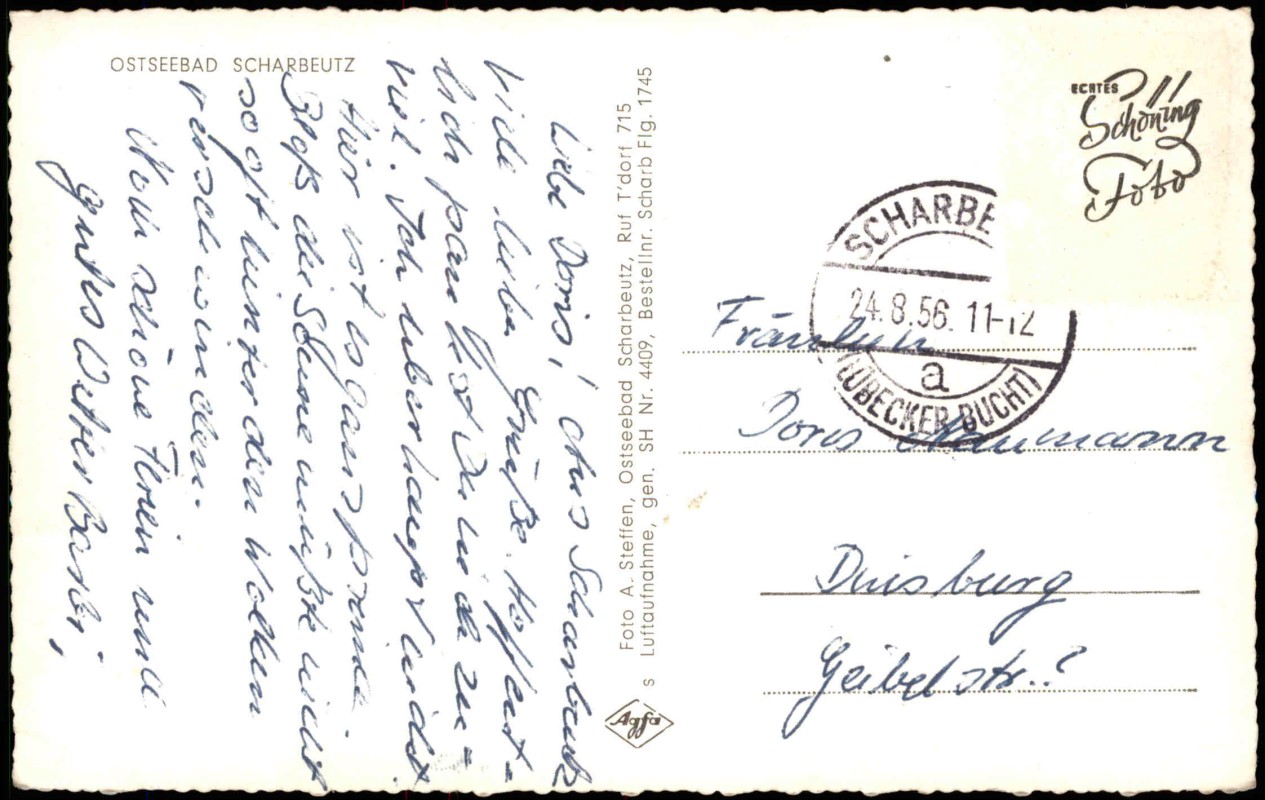 OSTSEEBAD SCHARBEUTZ
Liebe Doris! Aus Scharbeutz
viele liebe Grüße. Hoffent-
lich pau st Du nicht zu-
viel. Ich überhaupt nicht.
Hier ist es ganz prima.
Bloß die Sonne müßte nicht
so oft hinter den Wolken
verschwinden.
Noch schöne Ferien und
gutes Wetter
Foto A. Steffen, Ostseebad Scharbeutz, Ruf T'dorf 715
s Luftaufnahme, gen. SH Nr. 4409, Bestellnr. Scharb Flg. 1745
Agfa
ECHTES
Schöning
Foto
SCHARBE
24.8.56. 11-12
a
(LÜBECKER BUCHT)
Fräulein
Doris Naumann
Duisburg
Geibelstr.?